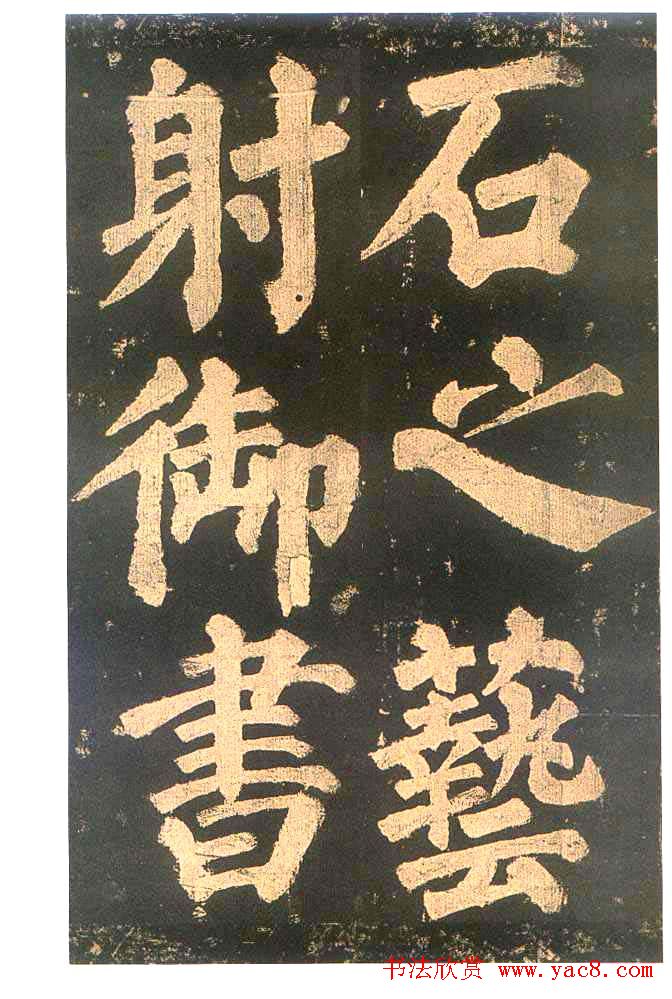 石之藝
射御書
书法欣赏 www.yac8.com